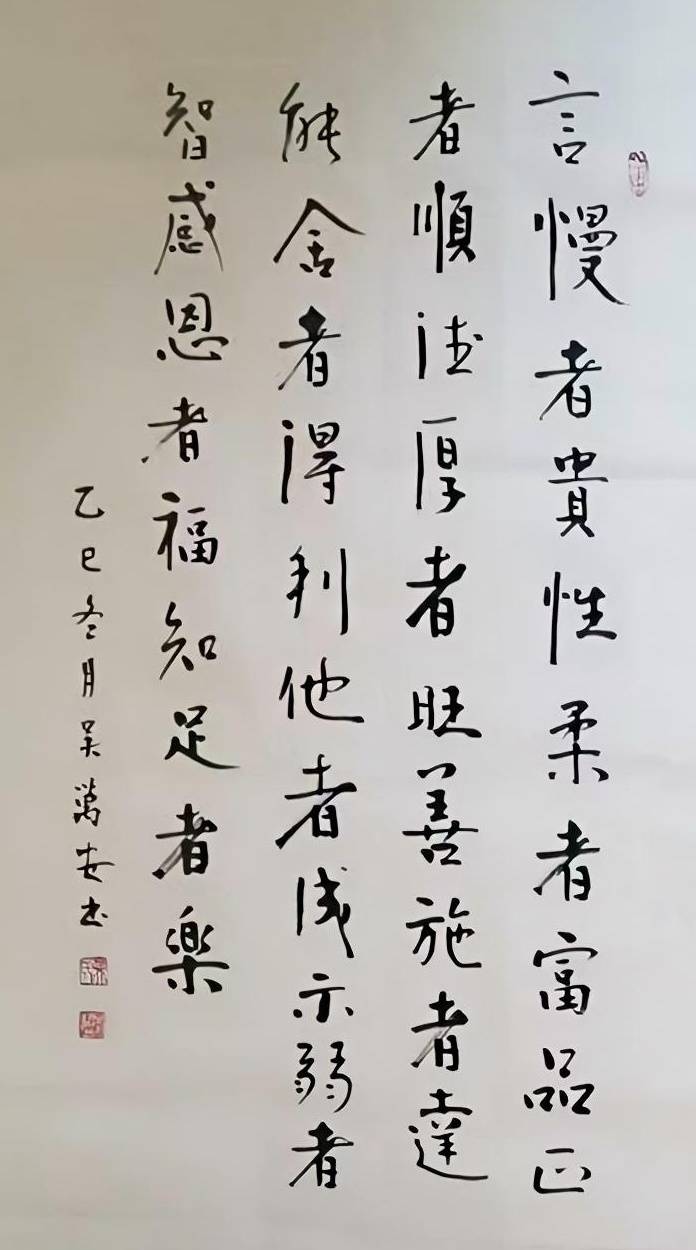 言慢者貴性柔者富品正
者順德厚者旺善施者達
能舍者得利他者成示弱者
智感恩者福知足者樂
乙巳冬月吴萬安书